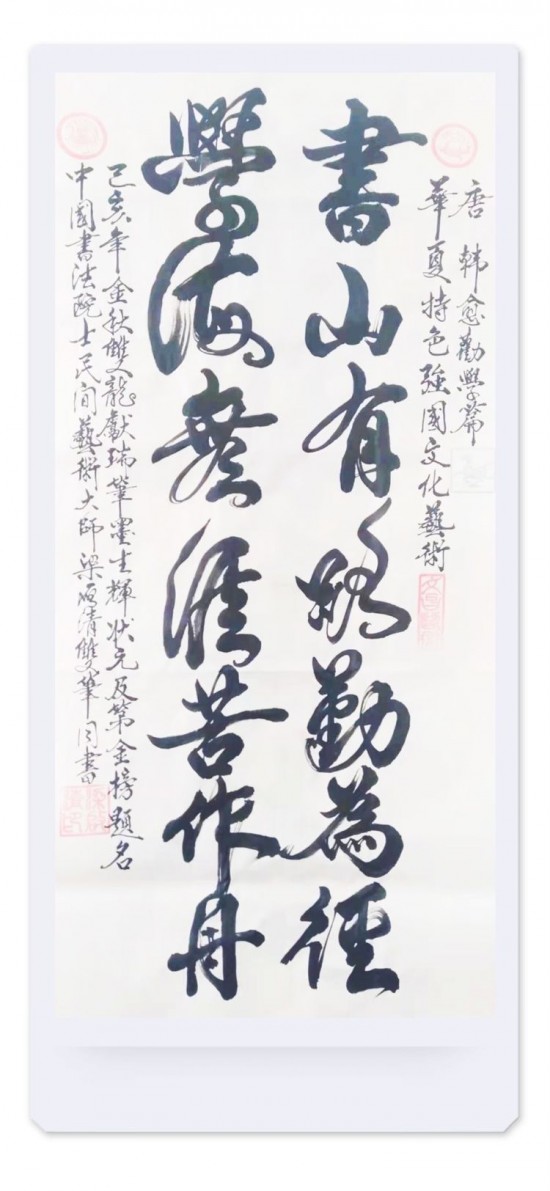 唐 韓愈勸學篇
華夏特色強國文化藝術
書山有路勤為徑
學海無涯苦作舟
己亥年金秋雙龍獻瑞筆墨生輝狀元及第金榜題名
中國書法院士民间藝術大師梁清雙筆同書